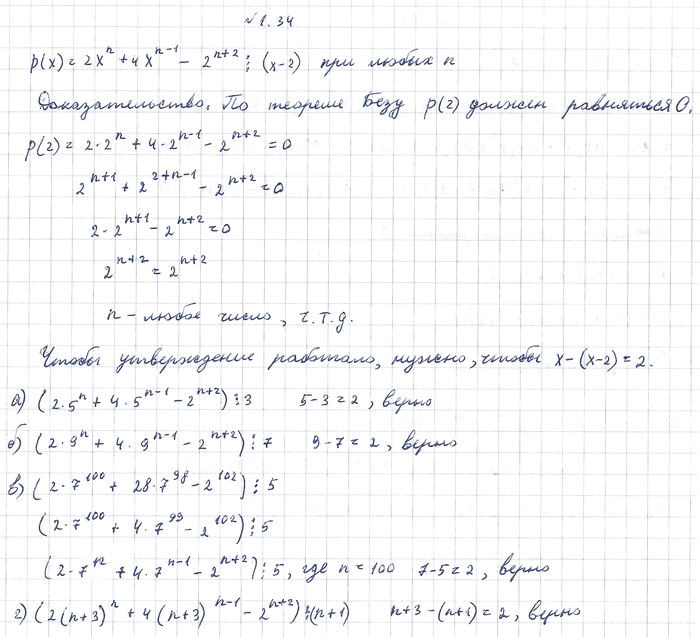 №1.34
p(x) = 2x^n + 4x^{n-1} - 2^{n+2} ⋮ (x-2) при любых n
Доказательство. По теореме Безу p(2) должен равняться 0.
p(2) = 2·2^n + 4·2^{n-1} - 2^{n+2} = 0
2^{n+1} + 2^{2+n-1} - 2^{n+2} = 0
2·2^{n+1} - 2^{n+2} = 0
2^{n+2} = 2^{n+2}
n - любое число, ч.т.д.
Чтобы утверждение работало, нужно, чтобы x-(x-2) = 2.
а) (2·5^n + 4·5^{n-1} - 2^{n+2}) ⋮ 3 5-3 = 2, верно
б) (2·9^n + 4·9^{n-1} - 2^{n+2}) ⋮ 7 9-7 = 2, верно
в) (2·7^{100} + 28·7^{98} - 2^{102}) ⋮ 5
(2·7^{100} + 4·7^{99} - 2^{102}) ⋮ 5
(2·7^n + 4·7^{n-1} - 2^{n+2}) ⋮ 5, где n = 100 7-5 = 2, верно
г) (2(n+3)^n + 4(n+3)^{n-1} - 2^{n+2}) ⋮ (n+1) n+3-(n+1) = 2, верно